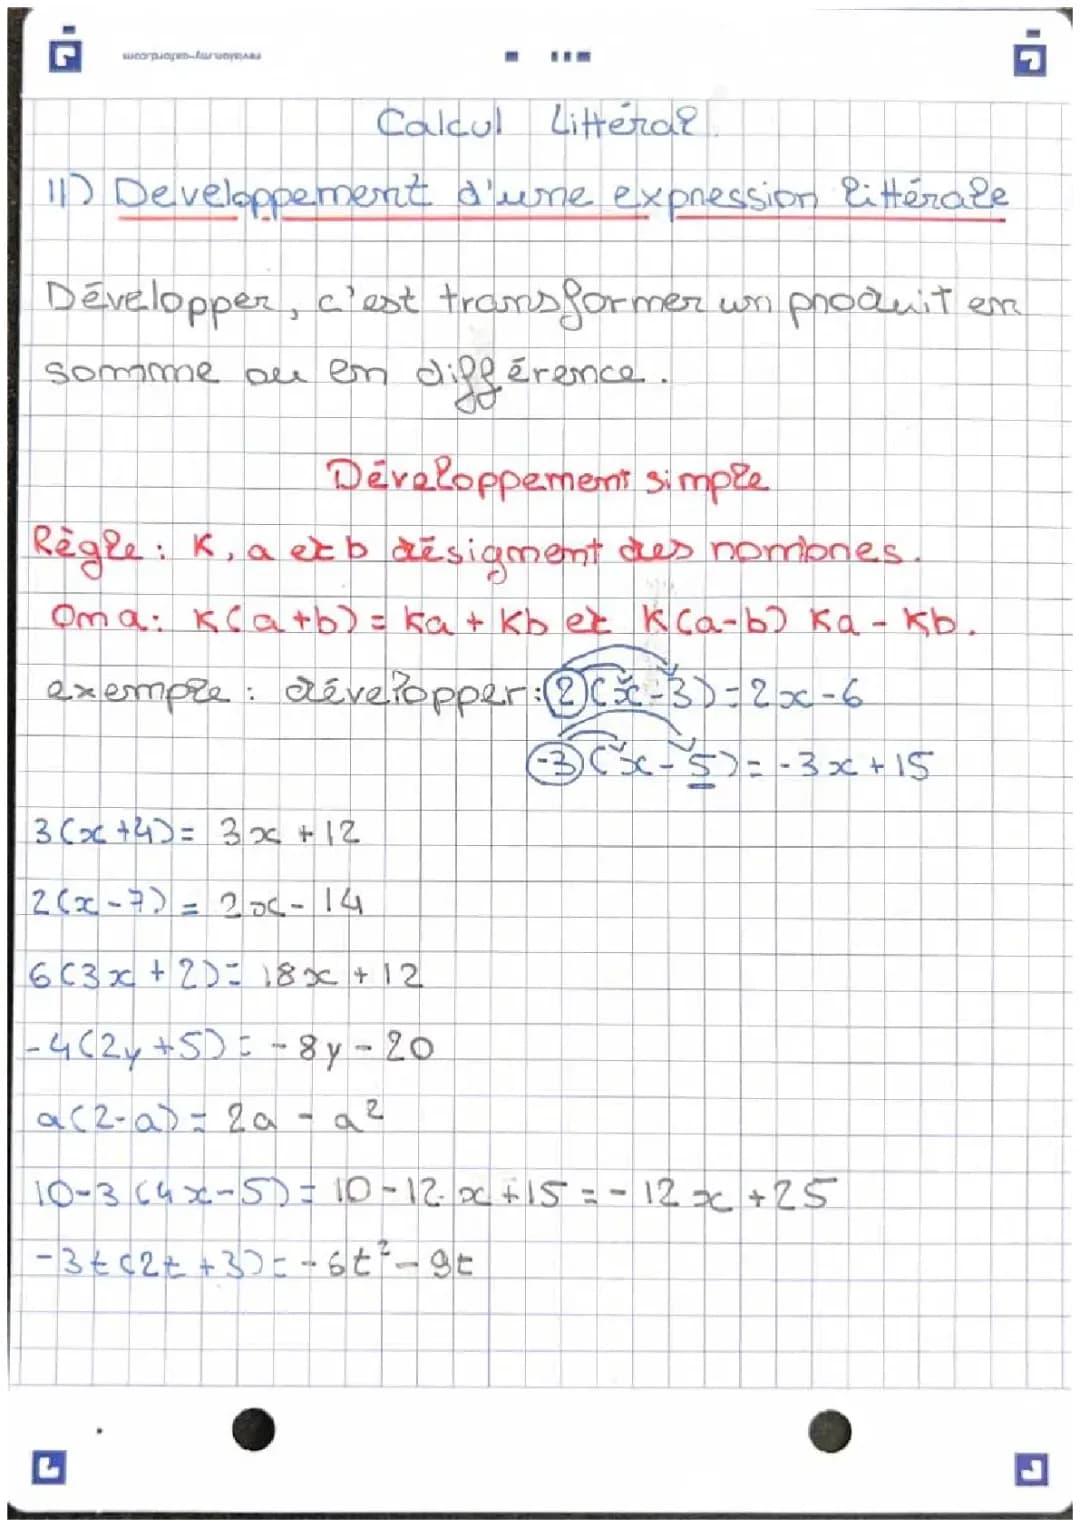 Calcul Littéral.
II) Developpement d'une expression littérale
Développer, c'est transformer un produit en
somme ou en différence.
Développement simple
Règle : K, a et b désignent des nombres.
On a : K(a+b) = Ka + Kb et K(a-b) Ka - Kb.
exemple : développer : 2(x-3) = 2x-6
-3(x-5) = -3x+15
3(x+4) = 3x+12
2(x-7) = 2x-14
6(3x+2) = 18x+12
-4(2y+5) = -8y-20
a(2-a) = 2a - a²
10-3(4x-5) = 10-12x+15 = -12x+25
-3t(2t+3) = -6t²-9t